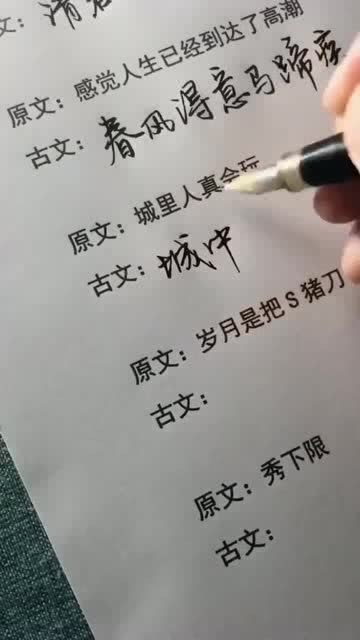 文：清
原文：感觉人生已经到达了高潮
古文：春风得意马蹄疾
原文：城里人真会玩
古文：城中
原文：岁月是把S猪刀
古文：
原文：秀下限
古文：